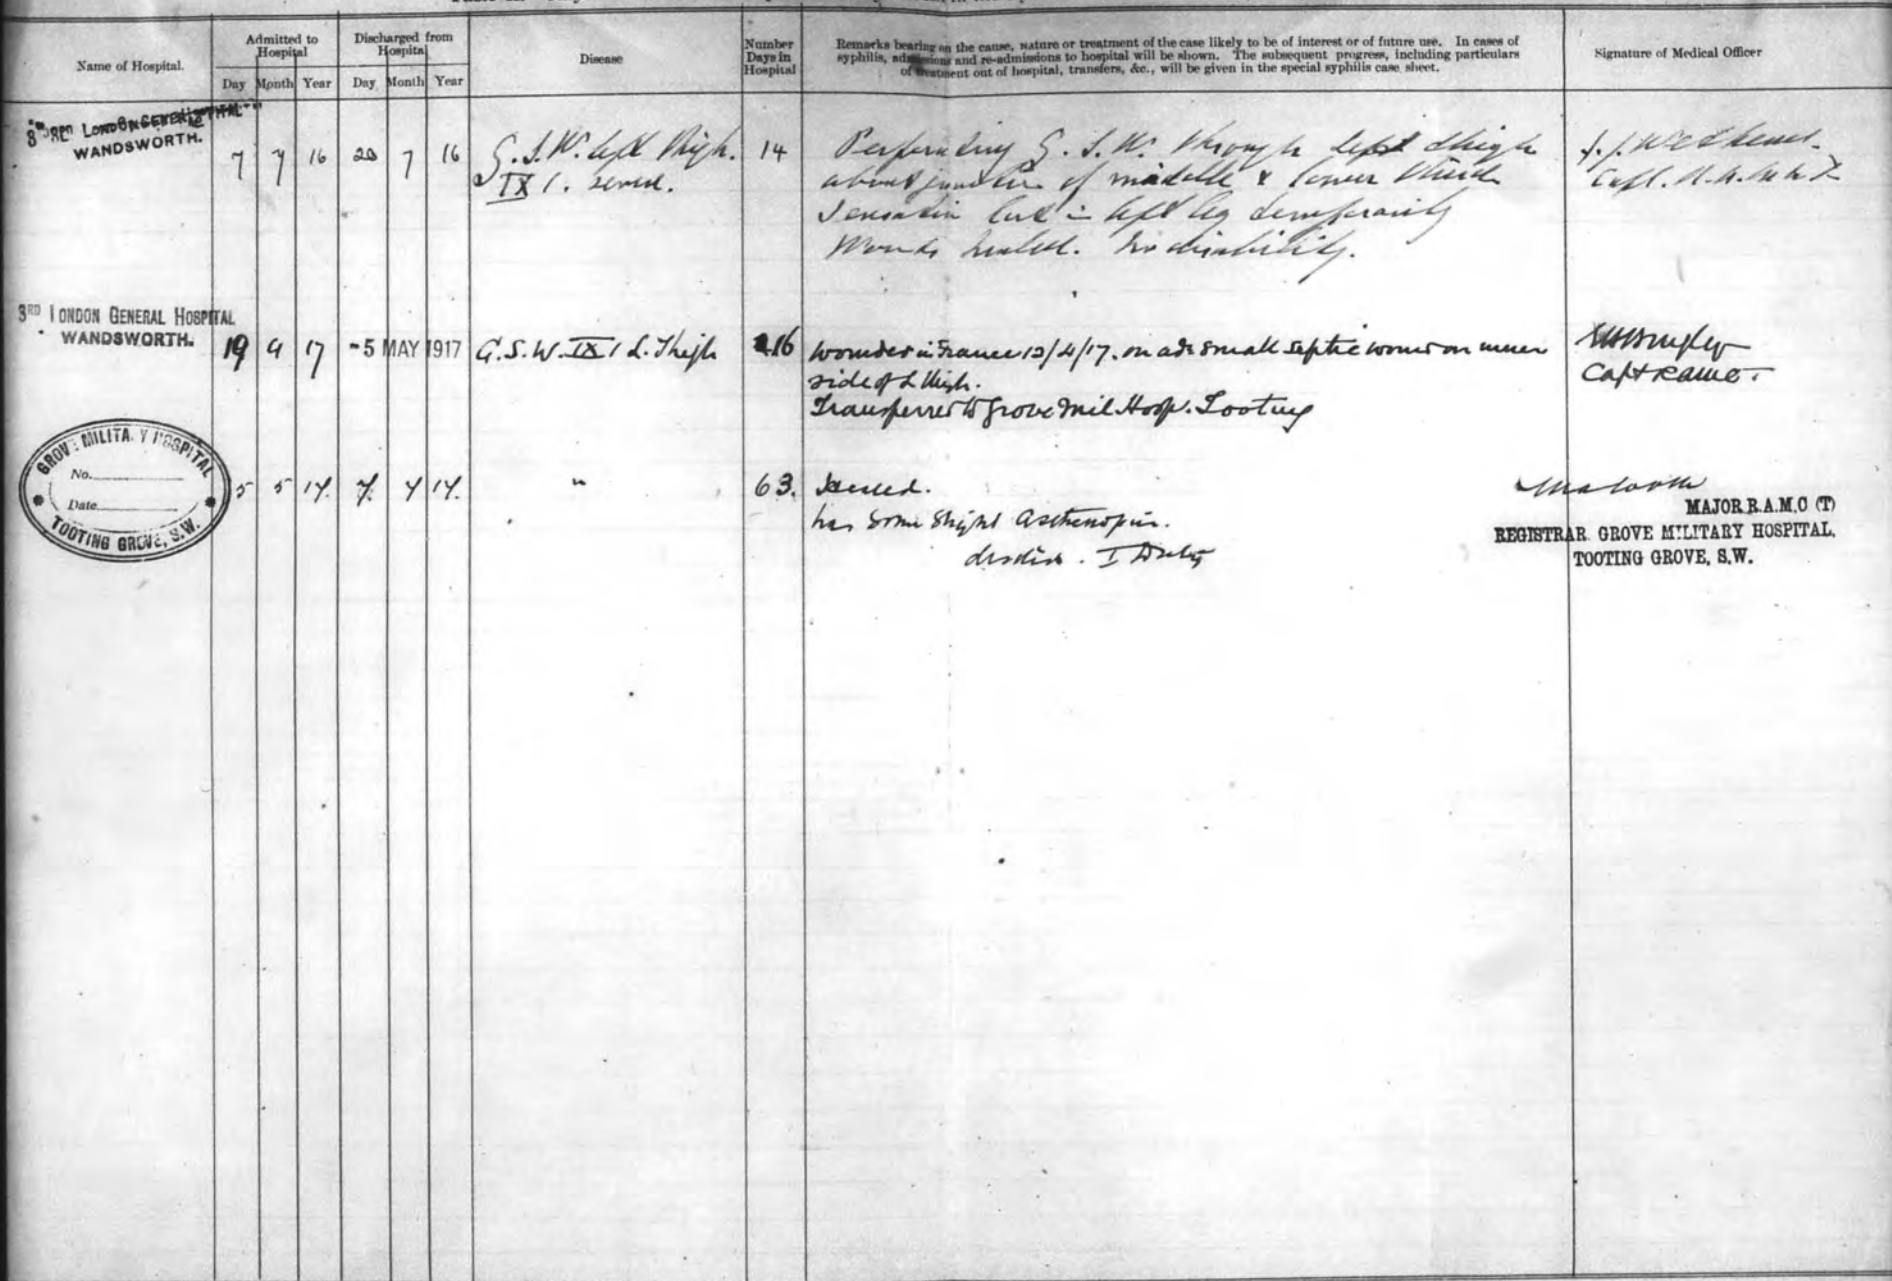 Name of Hospital.
Admitted to Hospital
Discharged from Hospital
Disease
Number Days in Hospital
Remarks bearing on the cause, nature or treatment of the case likely to be of interest or of future use. In cases of
syphilis, admissions and re-admissions to hospital will be shown. The subsequent progress, including particulars
of treatment out of hospital, transfers, &c., will be given in the special syphilis case sheet.
Signature of Medical Officer
Day Month Year Day Month Year
3RD LONDON GENERAL HOSPITAL
WANDSWORTH.
7 7 16 20 7 16
G.S.W. left thigh.
IX 1. severe.
14
Perforating G.S.W. through left thigh
about junction of middle & lower third
Sensation lost in left leg temporarily
Wounds healed. No disability.
Capt. R.A.M.C. T
3RD LONDON GENERAL HOSPITAL
WANDSWORTH.
19 4 17 -5 MAY 1917
G.S.W. IX 1 L. Thigh
16
Wounded in France 12/4/17. on ads small septic wound on inner
side of L thigh.
Transferred to Grove Mil. Hosp. Tooting
Capt RAMC.
GROVE MILITARY HOSPITAL
No.
Date
TOOTING GROVE, S.W.
5 5 17. 7. 7 17.
"
63.
Healed.
has some slight asthenopia.
I Duty
MAJOR R.A.M.C (T)
REGISTRAR. GROVE MILITARY HOSPITAL,
TOOTING GROVE, S.W.